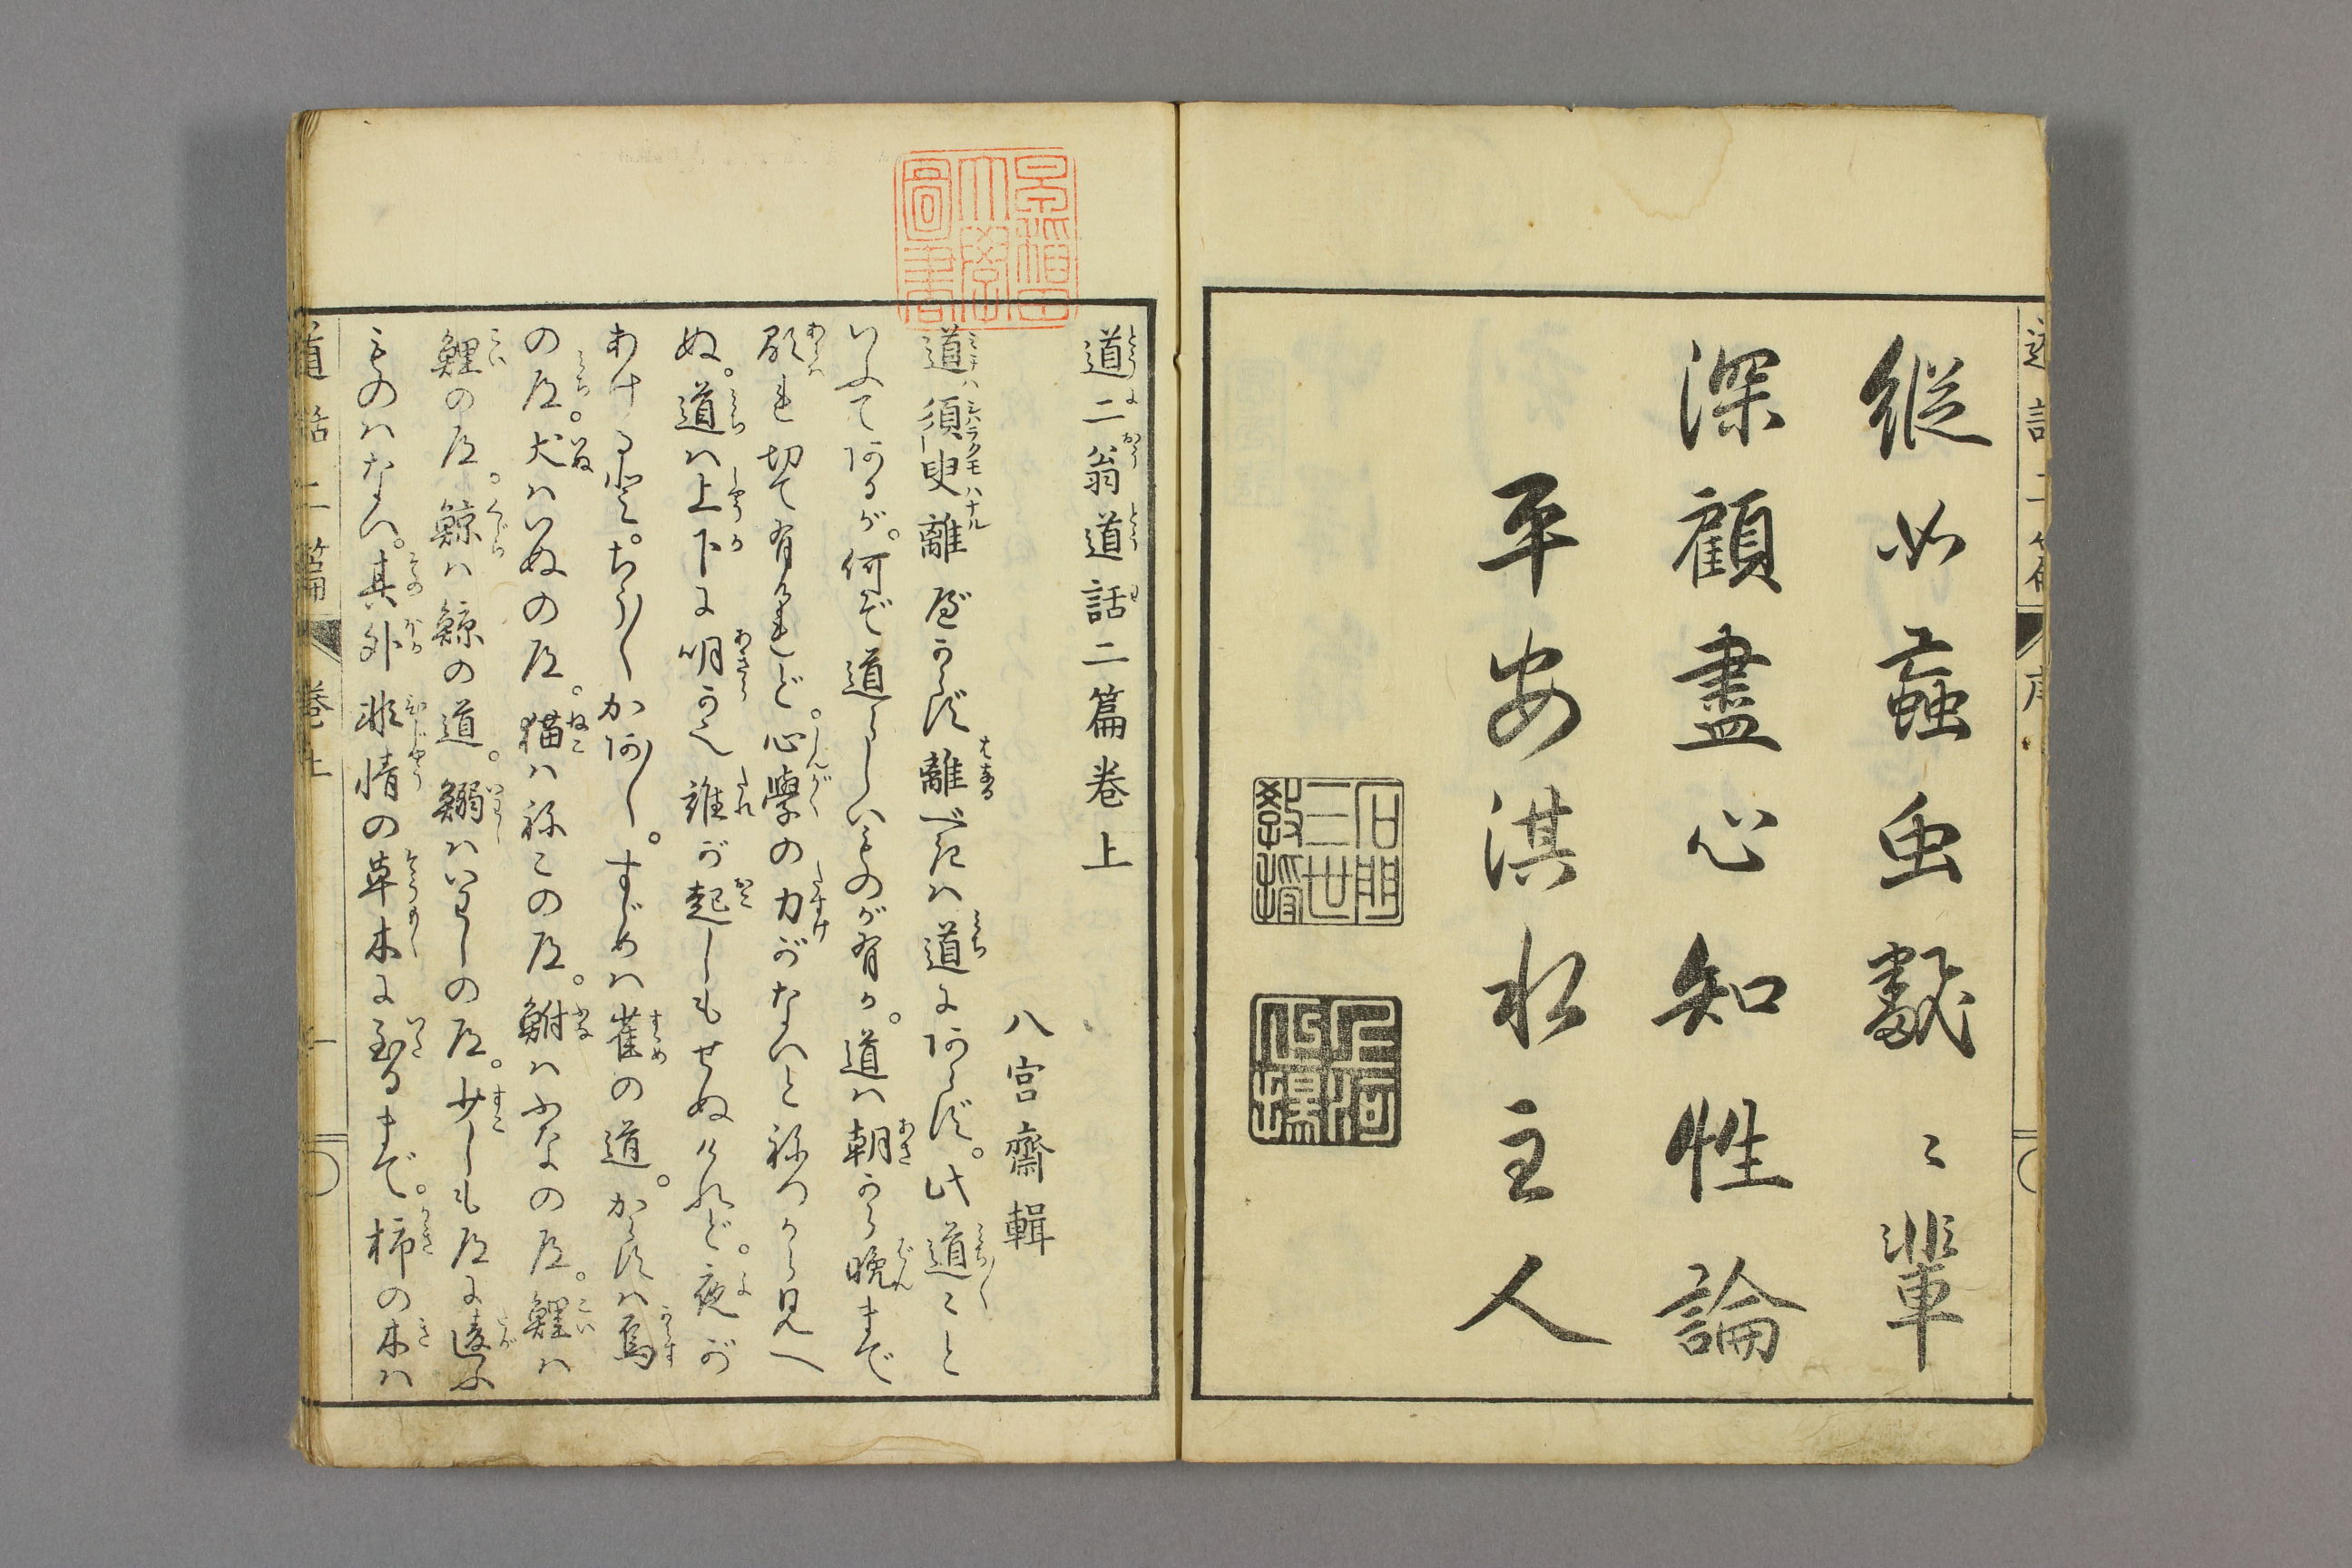 縦必蟲虫獣〻輩
深顧盡心知性論
平安淇水主人
石門
三世
教授
道二翁道話二篇巻上
八宮齋輯
道ハ須臾離べからず離べきハ道にあらず。此道〻こと
いふてあるが。何ぞ道らしいものが有か。道ハ朝から晩まで
顕れ切て有けれど。心學の力がないと祢つから見へ
ぬ。道ハ上下に明かに。誰が起しもせぬけれど。夜が
あけると。ちう〳〵かあ〳〵。すゞめハ雀の道。からすハ烏
の道。犬ハいぬの道。猫ハ祢この道。鮒ハふなの道。鯉ハ
鯉の道。鯨ハ鯨の道。鰯ハいわしの道。少しも道に違ふ
ものハない。其外非情の草木に至るまで。柿の木ハ
道話二篇 巻上 一